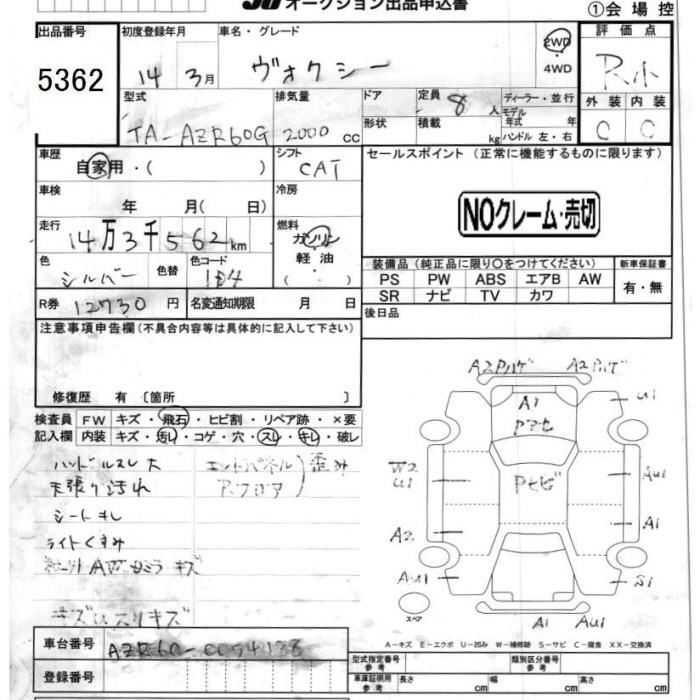 オークション出品申込書
①会場控
出品番号 初度登録年月 車名・グレード 評価点
5362 14年3月 ヴォクシー 2WD ・ 4WD R小
型式 排気量 ドア 定員 8人 ディーラー・並行 外装 内装
TA-AZR60G 2000cc 形状 積載 kg モデル年式 年 ハンドル 左・右 C C
車歴 自家用・( ) シフト CAT セールスポイント (正常に機能するものに限ります)
車検 年 月( 日) 冷房
NOクレーム・売切
走行 14万3千562km 燃料 ガソリン 軽油 ( ・ )
色 シルバー 色替 色コード 1E4
装備品 (純正品に限り〇をつけてください) 新車保証書
PS PW ABS エアB AW 有・無
SR ナビ TV カワ
R券 12730円 名変通知期限 月 日
後日品
注意事項申告欄 (不具合内容等は具体的に記入して下さい)
修復歴 有 〔箇所 〕
検査員 FW キズ・飛石・ヒビ割・リペア跡・×要
記入欄 内装 キズ・汚レ・コゲ・穴・スレ・キレ・破レ
ハンドルスレ大 エンドパネル 歪み
天張り汚れ R.フロア
シートキレ
ライトくすみ
キズ
A2Pハゲ A2Pハゲ
A1
U1
Pセヒ
W2
U1
AU1
A2
A1
AU1
S1
スペア
A1 AU1
A-キズ E-エクボ U-凹み W-補修跡 S-サビ C-腐食 XX-交換済
車台番号 AZR60-0094188
型式指定番号 参考 類別区分番号 参考
登録番号
車庫証明用 参考 長さ cm 幅 cm 高さ cm